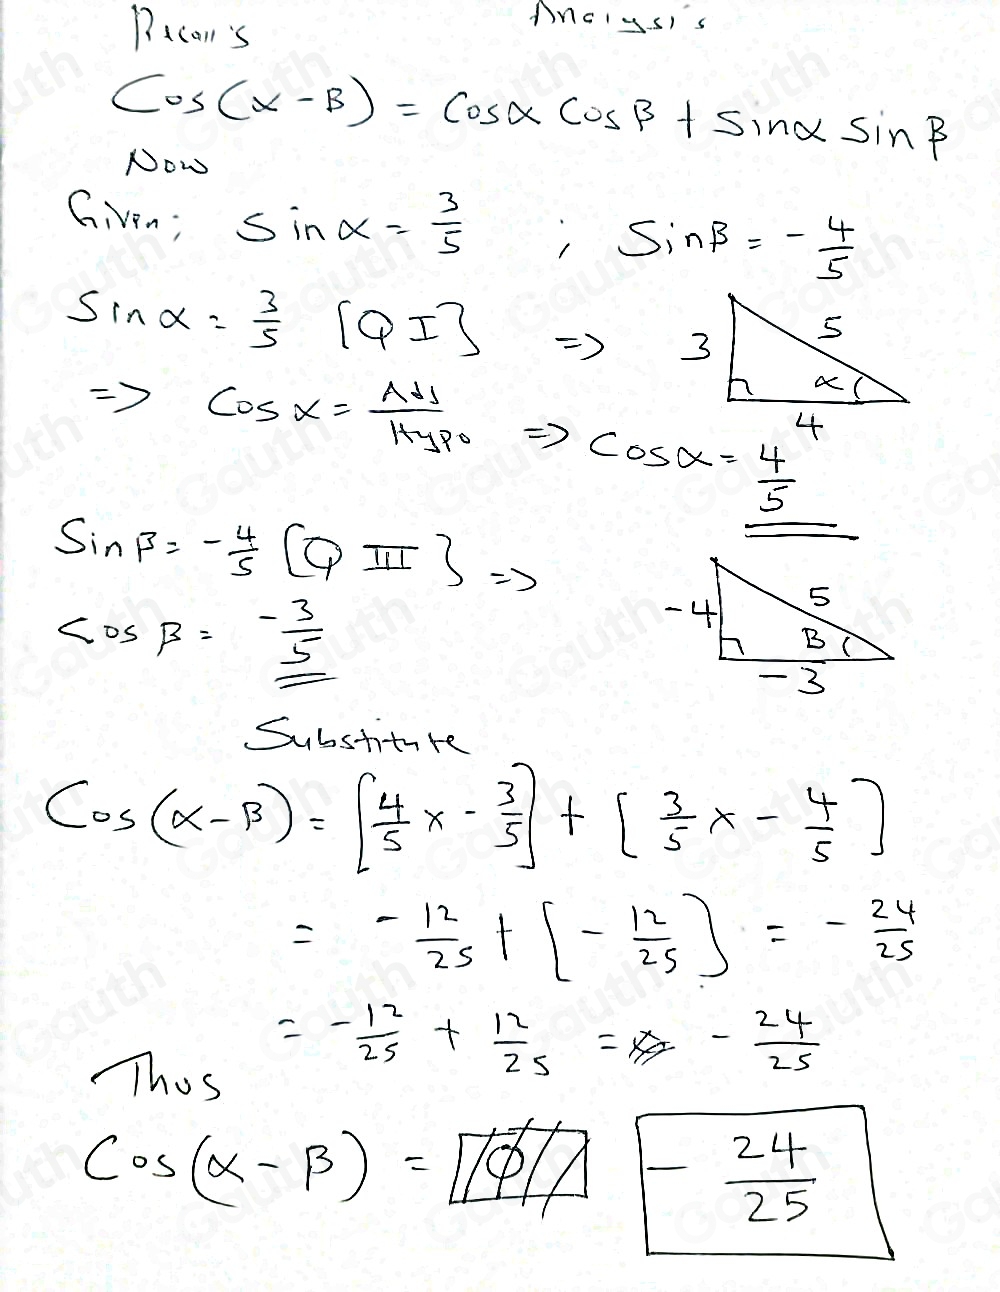 Recall's Analysis
Cos(α - β) = Cosα Cosβ + Sinα Sinβ
Now
Given; Sinα = 3/5 ; Sinβ = - 4/5
Sinα = 3/5 [Q I] => 3 5 α 4
=> Cosα = Adj/Hypo => Cosα = 4/5
Sinβ = - 4/5 [Q III] => -4 5 β -3
Cosβ = - 3/5
Substitute
Cos(α - β) = [4/5 x - 3/5] + [3/5 x - 4/5]
= - 12/25 + [- 12/25] = - 24/25
= - 12/25 + 12/25 = - 24/25
Thus
Cos(α - β) = - 24/25